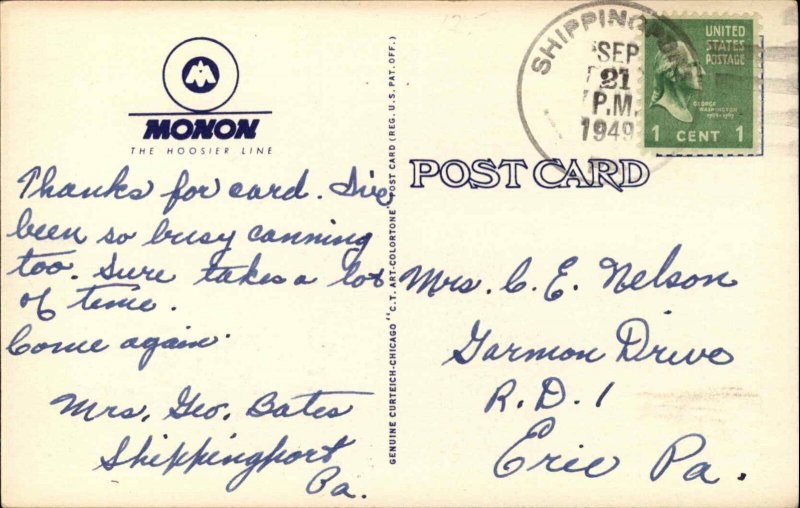 M
MONON
THE HOOSIER LINE
Thanks for card. I've
been so busy canning
too. Sure takes a lot
of time.
Come again.
Mrs. Geo. Bates
Shippingport
Pa.
GENUINE CURTEICH-CHICAGO "C.T. ART-COLORTONE" POST CARD (REG. U.S. PAT. OFF.)
SHIPPINGPORT
SEP
21
P.M.
1949
UNITED
STATES
POSTAGE
GEORGE
WASHINGTON
1 CENT 1
POST CARD
Mrs. C. E. Nelson
Garmon Drive
R. D. 1
Erie Pa.